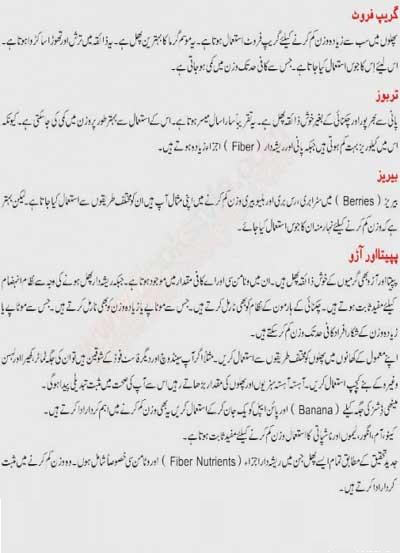 گریپ فروٹ
پھلوں میں سب سے زیادہ وزن کم کرنے کیلئے گریپ فروٹ استعمال ہوتا ہے۔ یہ موسم گرما کا بہترین پھل ہے۔ یہ ذائقہ میں ترش اور تھوڑا سا کڑوا ہوتا ہے۔
اس لیئے اِس کا جوس استعمال کیا جاتا ہے۔ جس سے کافی حد تک وزن میں کمی ہو جاتی ہے۔
تربوز
پانی سے بھرپور اور چکنائی کے بغیر خوش ذائقہ پھل ہے۔ یہ تقریباً سارا سال میسر ہوتا ہے۔ اس کے استعمال سے بہتر طور پر وزن میں کمی کی جا سکتی ہے۔ کیونکہ
اس میں کیلوریز بہت کم ہوتی ہیں جبکہ پانی اور ریشہ دار ( Fiber ) اجزاء زیادہ ہوتے ہیں۔
بیریز
بیریز ( Berries ) میں سٹرابری، رس بری اور بلیو بیری وزن کم کرنے میں اپنی مثال آپ ہیں ان کو مختلف طریقوں سے استعمال کیا جاتا ہے۔ لیکن بہتر
ہے کہ وزن کم کرنے کیلئے نہار منہ ان کا جوس استعمال کیا جائے۔
پپیتا اور آڑو
پپیتا اور آڑو بھی گرمیوں کے خوش ذائقہ پھل ہیں۔ ان میں وٹامن سی اور اے کافی مقدار میں موجود ہوتا ہے۔ جبکہ ریشہ دار پھل ہونے کی وجہ سے نظام انہضام
کیلئے مفید ثابت ہوتے ہیں۔ چکنائی کے ہارمون کے نظام کو بھی نارمل کرتے ہیں۔ جس سے موٹاپے یا زیادہ وزن بھی نارمل کرتے ہیں۔ جس سے موٹاپے یا
زیادہ وزن کے شکار افراد کافی حد تک وزن کم کر سکتے ہیں۔
اپنے معمول کے کھانوں میں پھلوں کو مختلف طریقوں سے استعمال کریں۔ مثلاً اگر آپ سینڈوچ اور دیگر فاسٹ فوڈ کے شوقین ہیں تو ان کی جگہ ٹماٹر، کھیر اور لہسن
وغیرہ کے بنے کیچپ استعمال کریں۔ آہستہ آہستہ سبزیوں اور پھلوں کی مقدار بڑھاتے رہیں اس سے آپ کی صحت میں مثبت تبدیلی پیدا ہو گی۔
میٹھی ڈشز کی جگہ کیلے ( Banana ) اور پائن ایپل کو یک جان کر کے استعمال کریں یہ بھی وزن کم کرنے میں اہم کردار ادا کرتے ہیں۔
کینو، آم، انگور، لیموں اور ناشپاتی کا استعمال وزن کم کرنے کیلئے مفید ثابت ہوتا ہے۔
جدید تحقیق کے مطابق تمام ایسے پھل جن میں ریشہ دار اجزاء ( Fiber Nutrients ) اور وٹامن سی خصوصاً شامل ہوں۔ وہ وزن کم کرنے میں مثبت
کردار ادا کرتے ہیں۔